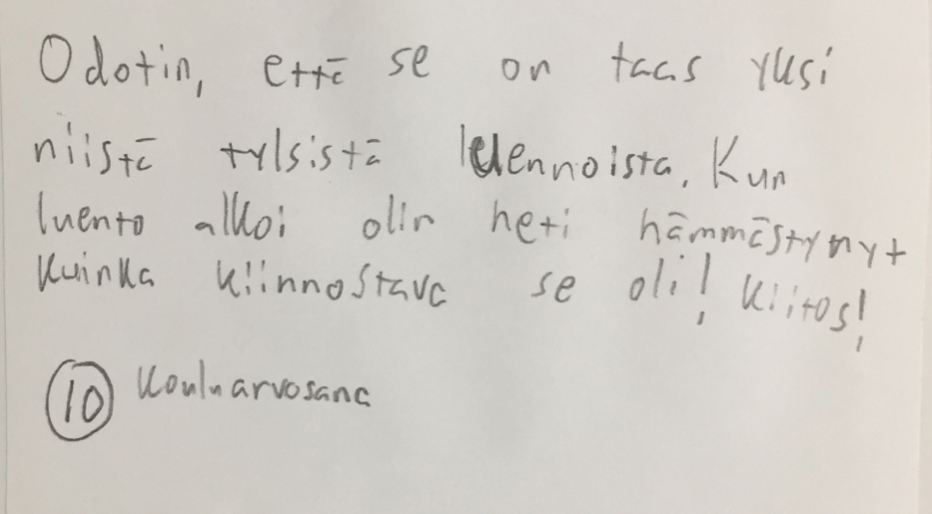 Odotin, että se on taas yksi
niistä tylsistä luennoista. Kun
luento alkoi olin heti hämmästynyt
kuinka kiinnostava se oli! Kiitos!
10 kouluarvosana